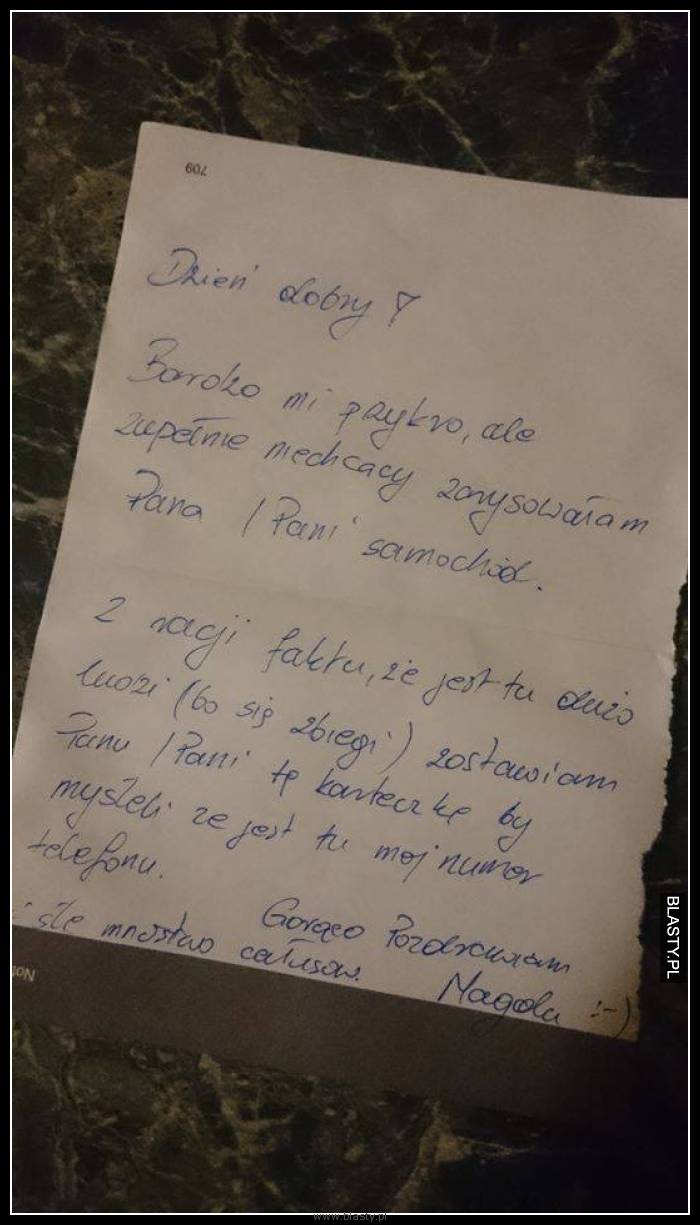 709
Dzień dobry!
Bardzo mi przykro, ale
zupełnie niechcący zarysowałam
Pana / Pani samochód.
Z racji faktu, że jest tu dużo
ludzi (bo się zbiegi) zostawiam
Panu / Pani tę karteczkę by
myśleli że jest tu mój numer
telefonu.
Gorąco Pozdrawiam
i ślę mnóstwo całusów.
Magda :-)
Not
BLASTY.PL
www.blasty.pl